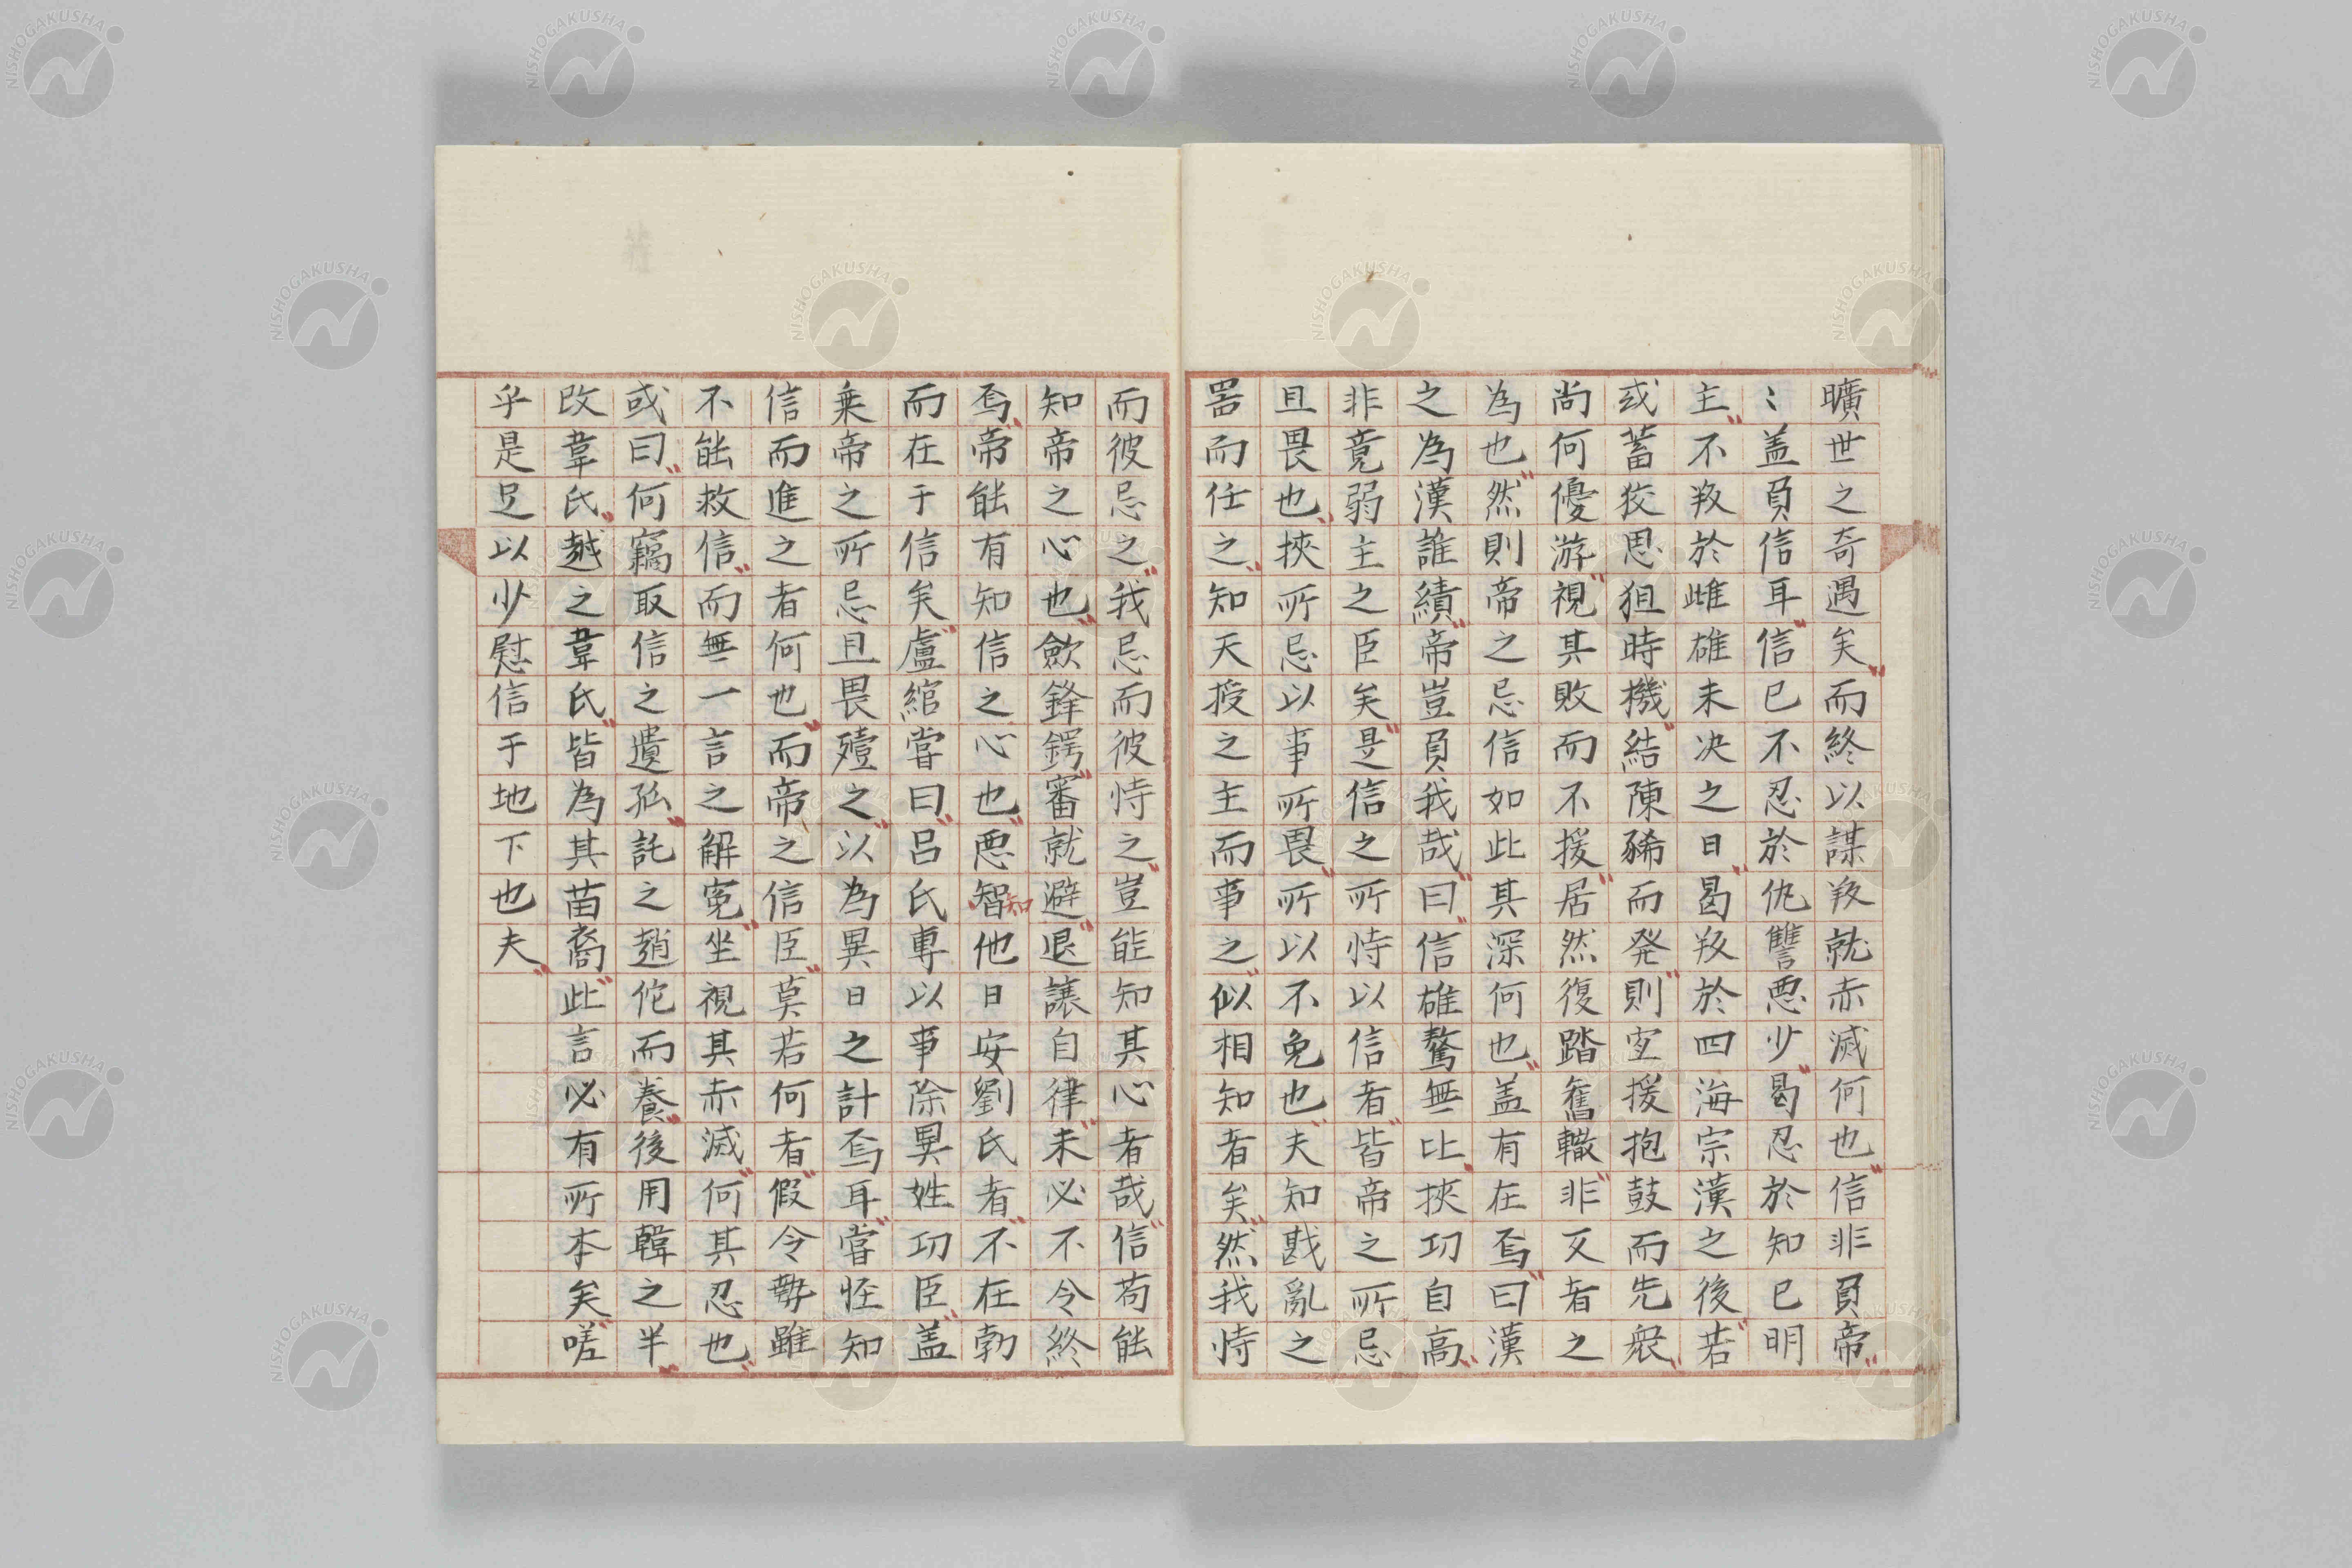 曠世之奇遇矣而終以謀叛就赤滅何也信非負帝
〻盖負信耳信已不忍於仇讐悪少曷忍於知已明
主不叛於雌雄未决之日曷叛於四海宗漢之後若
或蓄狡思狙時機結陳豨而発則宜援抱鼓而先衆
尚何優游視其敗而不援居然復踏舊轍非又者之
為也然則帝之忌信如此其深何也盖有在焉曰漢
之為漢誰績帝豈負我哉曰信雄驁無比挾功自高
非竟弱主之臣矣是信之所恃以信者皆帝之所忌
且畏也挾所忌以事所畏所以不免也夫知戡亂之
器而任之知天授之主而事之似相知者矣然我恃
而彼忌之我忌而彼恃之豈能知其心者哉信苟能
知帝之心也歛鋒鍔審就避退讓自律未必不令終
焉帝能有知信之心也悪智知他日安劉氏者不在勃
而在于信矣盧綰嘗曰呂氏專以事除異姓功臣盖
乗帝之所忌且畏殪之以為異日之計焉耳嘗怪知
信而進之者何也而帝之信臣莫若何者假令勢雖
不能救信而無一言之解寃坐視其赤滅何其忍也
或曰何竊取信之遺孤託之趙佗而養後用韓之半
改韋氏越之韋氏皆為其苗裔此言必有所本矣嗟
乎是足以少慰信于地下也夫